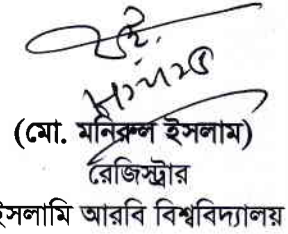 (মো. মনিরুল ইসলাম)
রেজিস্ট্রার
ইসলামি আরবি বিশ্ববিদ্যালয়